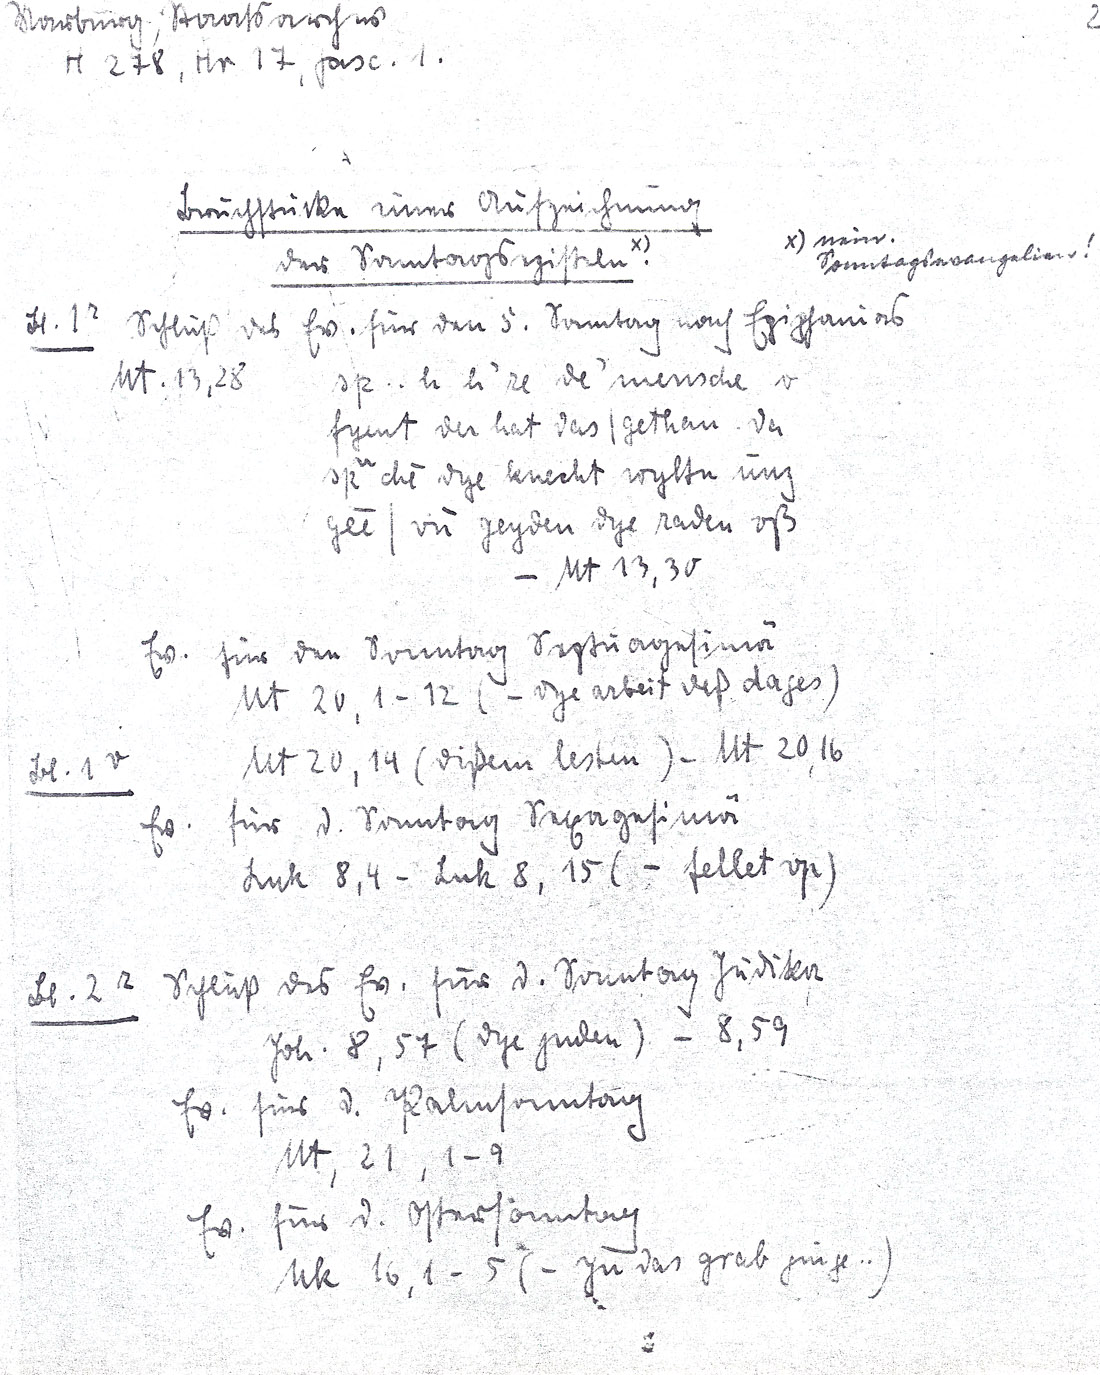 Marburg, Staatsarchiv
2
H 278, Nr 17, fasc. 1.
Bruchstücke einer Aufzeichnung
der Sonntagsepisteln x)!
x) nein.
Sonntagsevangelien!
Bl. 1r Schluß des Ev. für den 5. Sonntag nach Epiphanias
Mt. 13,28 sp .. h h're de' mensche v
fyent der hat das | gethan . da
sp chē dye knecht wyltu unz
gēē | vn̄ geyden dye raden vß
– Mt 13,30
Ev. für den Sonntag Septuagesimä
Mt 20, 1-12 ( – dye arbeit deß dages)
Bl. 1v Mt 20, 14 (dißem lesten ) – Mt 20,16
Ev. für d. Sonntag Sexagesimä
Luk 8,4 – Luk 8, 15 ( – fellet vp)
Bl. 2r Schluß des Ev. für d. Sonntag Judika
Joh. 8, 57 (dye juden) – 8,59
Ev. für d. Palmsonntag
Mt, 21 , 1-9
Ev. für d. Ostersonntag
Mk 16, 1 – 5 ( – zu das grab ginge..)